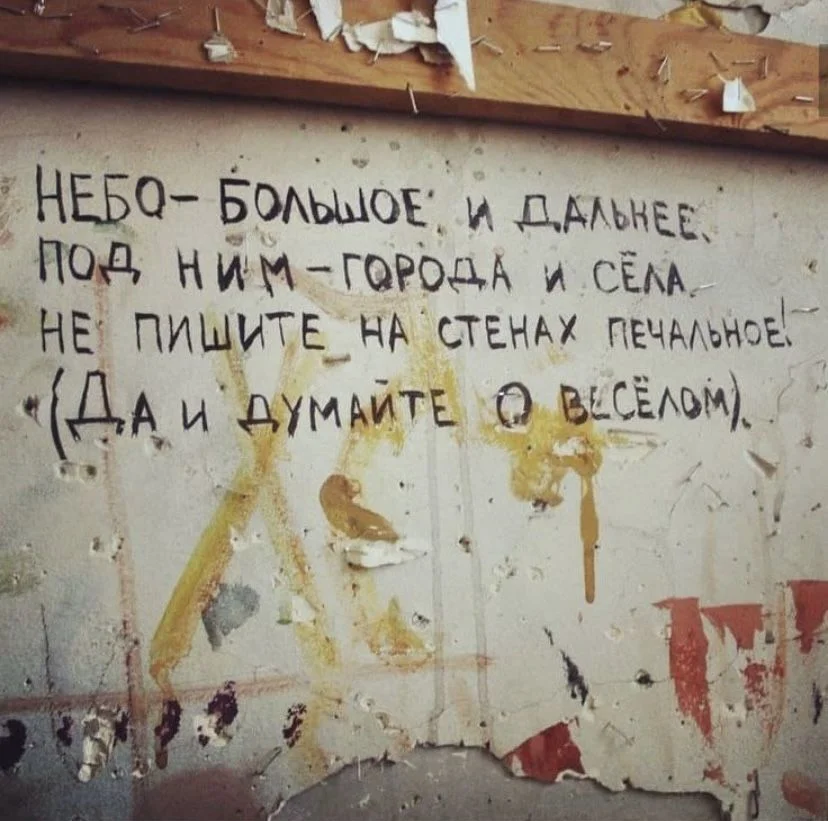 НЕБО- БОЛЬШОЕ И ДАЛЬНЕЕ.
ПОД НИМ - ГОРОДА И СЁЛА.
НЕ ПИШИТЕ НА СТЕНАХ ПЕЧАЛЬНОЕ!
(ДА И ДУМАЙТЕ О ВЕСЁЛОМ).